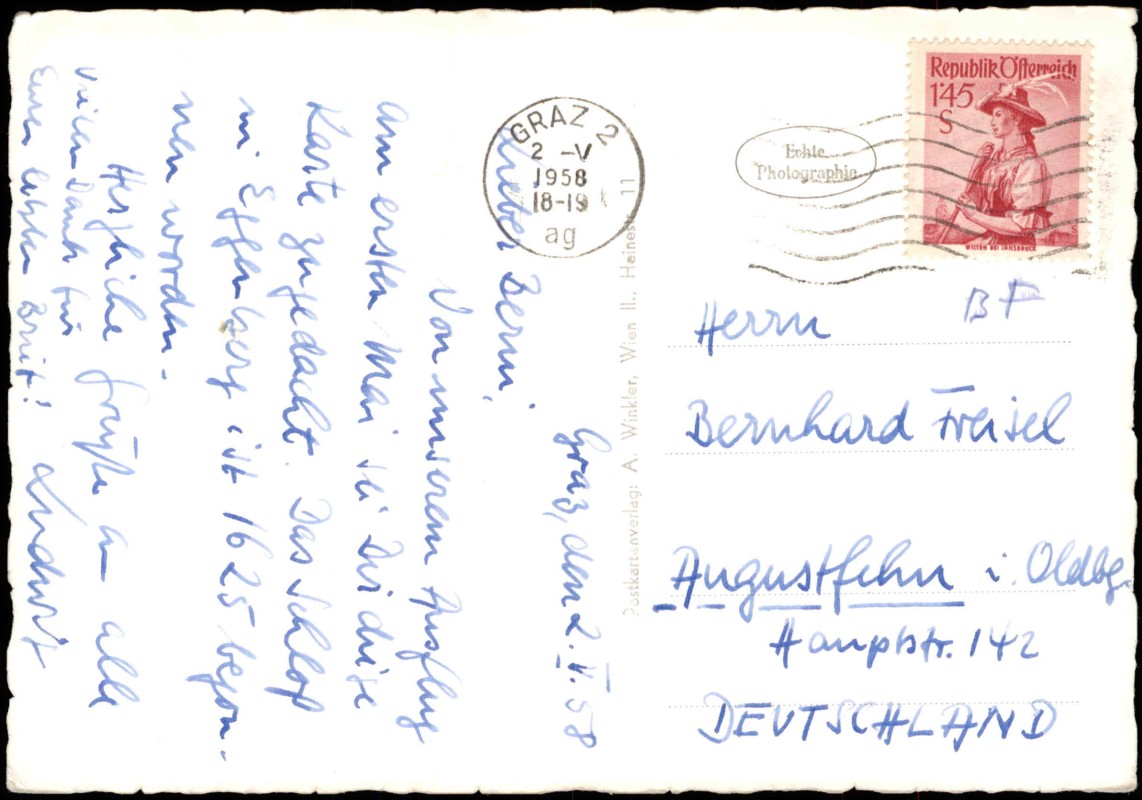 Graz, den 2. V. 58
Lieber Berni,
Von unserem Ausflug
am ersten Mai sei Dir diese
Karte zugedacht. Das Schloß
in Eggenberg ist 1625 begon-
nen worden.
Herzliche Grüße an alle
Vielen Dank für
Euren lieben Brief! Ludwig
Postkartenverlag: A. Winkler, Wien II., Heinestr. 11
GRAZ 2
2 -V
1958
18-19
ag
Echte
Photographie
Republik Österreich
1'45
S
WILTEN BEI INNSBRUCK
BF
Herrn
Bernhard Freisel
Augustfehn i. Oldbg.
Hauptstr. 142
DEUTSCHLAND